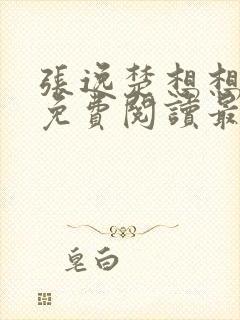 張逸楚想想
免費閱讀最
皂白